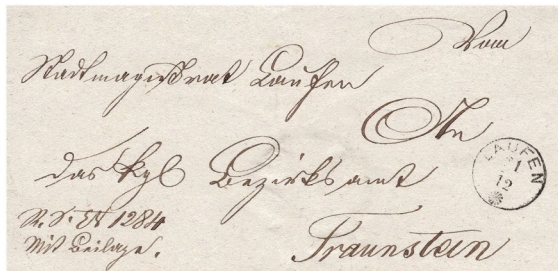 Vom
Stadtmagistrat Laufen
An
das kgl Bezirksamt
LAUFEN
21
12
R. S. N 1284
Mit Beilage.
Traunstein